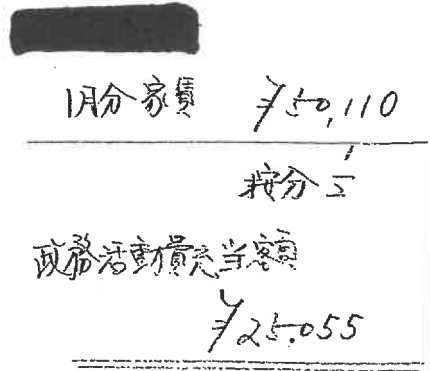 1月分家賃 ¥50,110
按分 1/2
政務活動費充当額
¥25.055